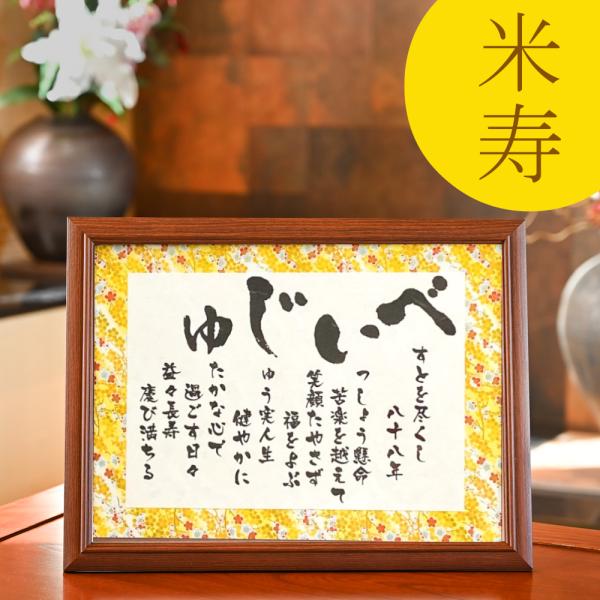 米寿
べいじゆ
すとを尽くし
八十八年
つしょう懸命
苦楽を越えて
笑顔たやさず
福をよぶ
ゆう実人生
健やかに
たかな心で
過ごす日々
益々長寿
慶び満ちる